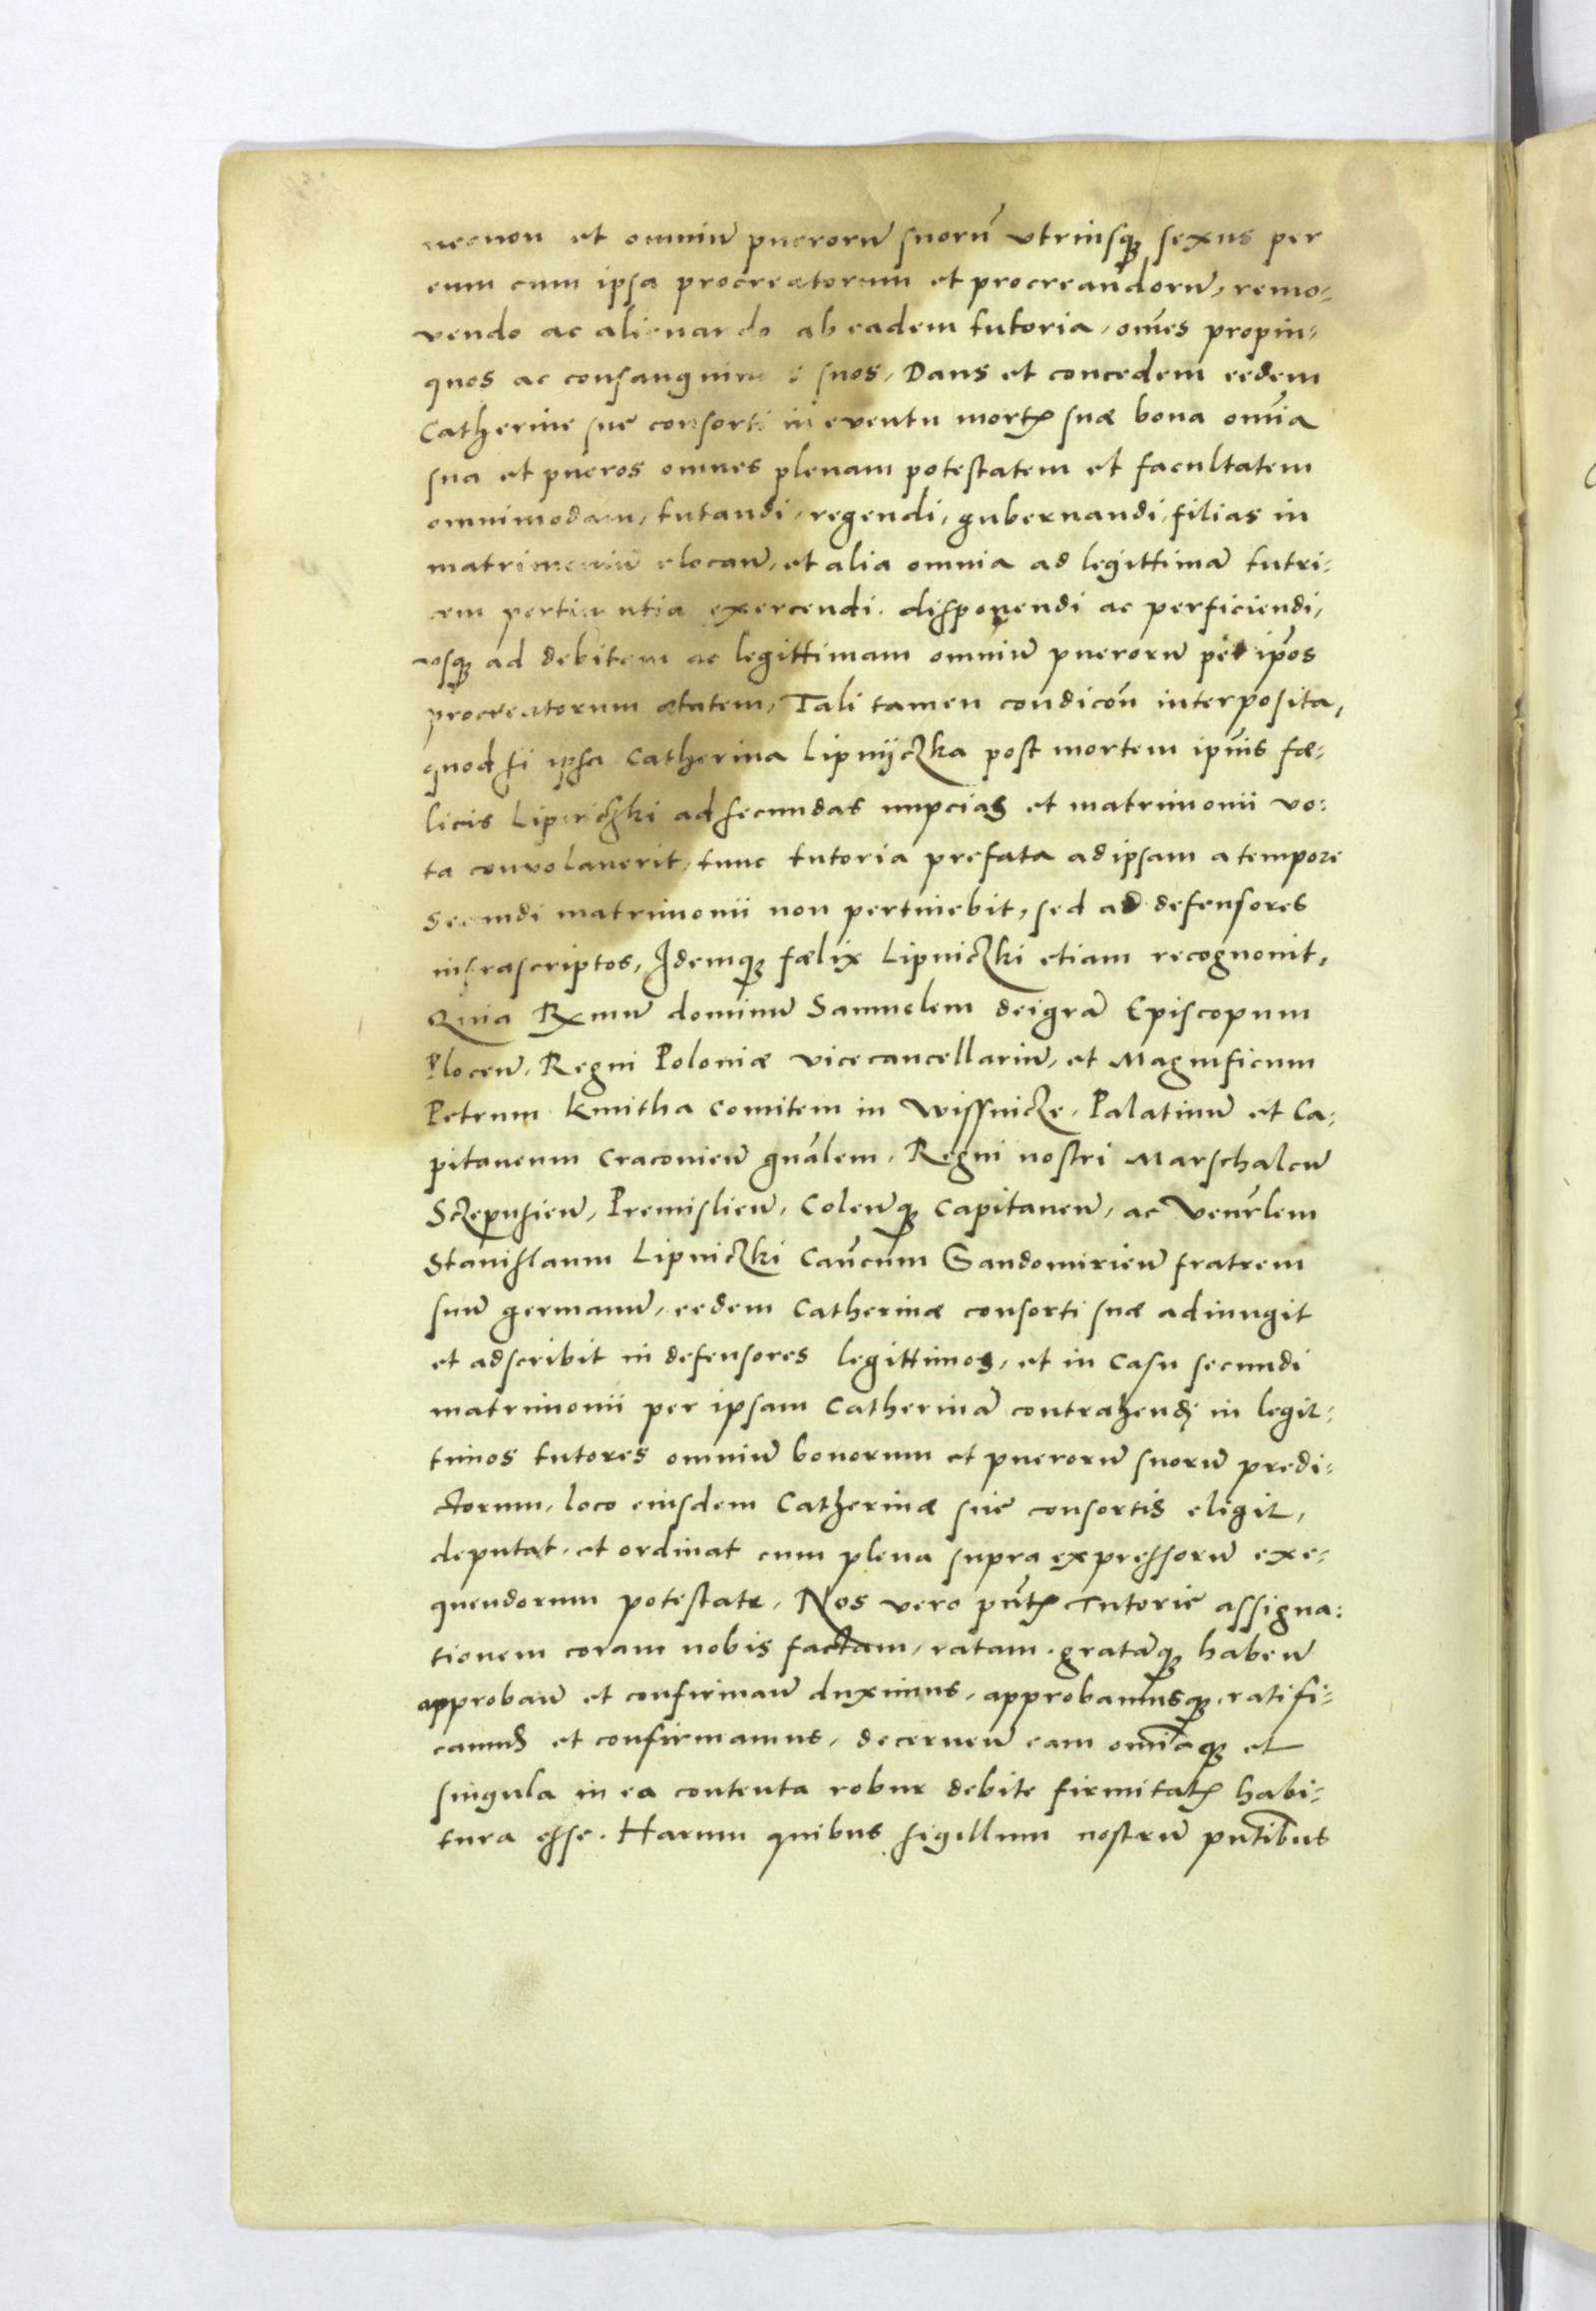 necnon et omniu͂ pueroru͂ suoru͂ vtriusq; sexus per
eum cum ipsa procreatorum et procreandoru͂, remo-
vendo ac alienando ab eadem tutoria, om͂es propin-
quos ac consanguineos suos, Dans et concedem eedem
Catherine sue consorti in eventu mortꝭ suæ bona om͂ia
sua et pueros omnes plenam potestatem et facultatem
omnimodam, tutandi, regendi, gubernandi, filias in
matrimoniu͂ elocan͂, et alia omnia ad legittima͂ tutri-
cem pertinentia exercendi, disponendi ac perficiendi,
vsq; ad debitam ac legittimam omniu͂ pueroru͂ per ip͂os
procreatorum ætatem, Tali tamen condico͂n interposita,
quod si ipsa Catherina Lipnijczka post mortem ip͂ius fœ-
licis Lipniczki ad secundas nupcias et matrimonii vo-
ta convolauerit, tunc tutoria prefata ad ipsam a tempore
Secundi matrimonii non pertinebit, sed ad defensores
infrascriptos, Idemq; fœlix Lipniczki etiam recognouit,
Quia Rx͂mu͂ dominu͂ Samuelem dei gra͂ Episcopum
Plocen͂, Regni Poloniæ vicecancellariu͂, et Magnificum
Petrum Kmitha Comitem in Wissnicze, Palatinu͂ et Ca-
pitaneum Cracouien͂ gn͂alem, Regni nostri Marschalcu͂
Sczepusien͂, Premislien͂, Colen͂q; Capitaneu͂, ac Ven͂rlem
Stanislaum Lipniczki Can͂cum Sandomirien͂ fratrem
suu͂ germanu͂, eedem Catherinæ consorti suæ adiungit
et adscribit in defensores legittimos, et in casu secundi
matrimonii per ipsam Catherina͂ contrahendi in legit-
timos tutores omniu͂ bonorum et pueroru͂ suoru͂ predi-
ctorum, loco eiusdem Catherinæ sue consortis eligit,
deputat, et ordinat cum plena supra expressoru͂ exe-
quendorum potestate, Nos vero pn͂tꝭ Tutorie assigna-
tionem coram nobis factam, ratam, grata͂q; haben͂
approban͂ et confirman͂ duximus, approbamusq; ratifi-
camus et confirmamus, decernen͂ eam om͂iaq; et
singula in ea contenta robur debite firmitatꝭ habi-
tura esse. Harum quibus sigillum nostru͂ pn͂tibus